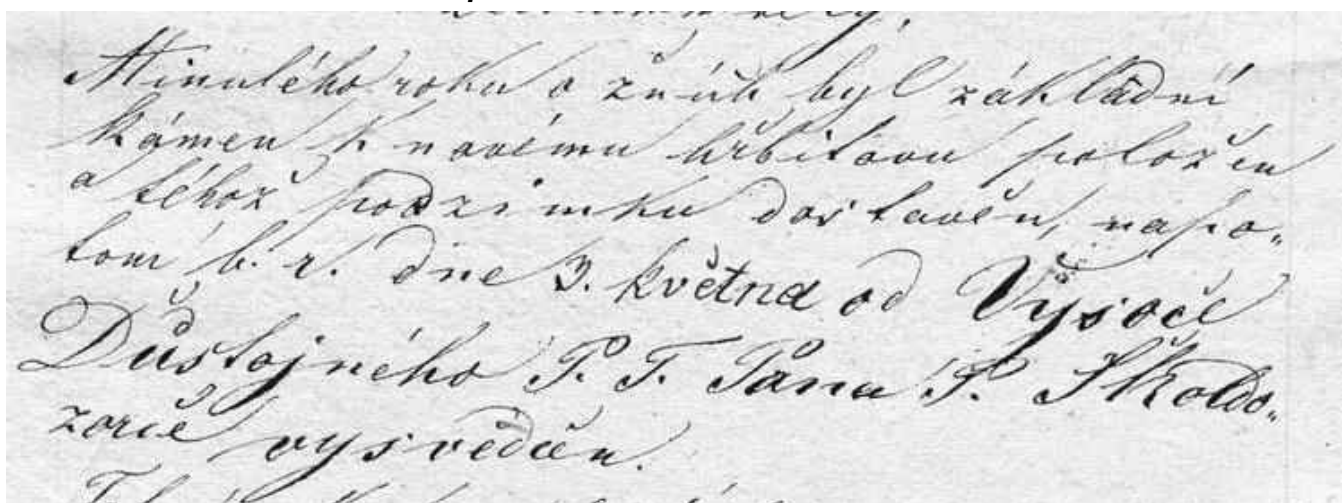 Minulého roku o žních byl základní
kámen k novému hřbitovu položen
a téhož podzimku dostavěn, napo„
tom b. r. dne 3. května od Vysoce
Důstojného P. T. Pána P. Školdo„
zorce vysvěcen.